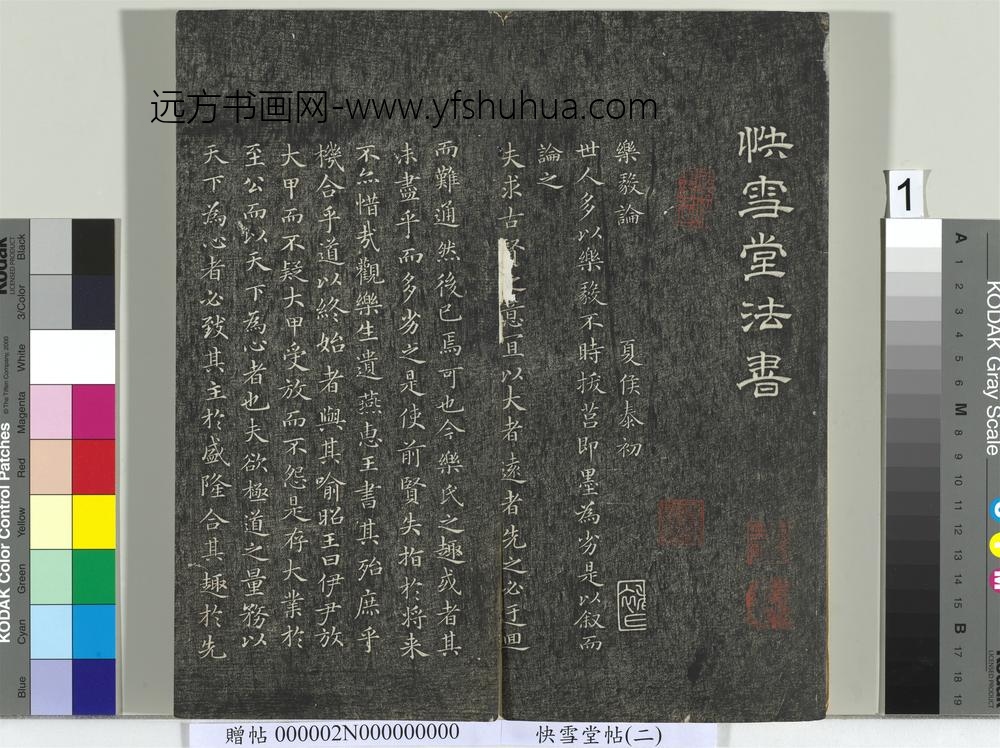 远方书画网-www.yfshuhua.com
快雪堂法書
樂毅論 夏侯泰初
世人多以樂毅不時拔莒即墨為劣是以叙而
論之
夫求古賢之意宜以大者遠者先之必迂迴
而難通然後已焉可也今樂氏之趣或者其
未盡乎而多劣之是使前賢失指於將来
不亦惜哉觀樂生遺燕惠王書其殆庶乎
機合乎道以終始者與其喻昭王曰伊尹放
大甲而不疑大甲受放而不怨是存大業於
至公而以天下為心者也夫欲極道之量務以
天下為心者必致其主於盛隆合其趣於先
贈帖 000002N000000000
快雪堂帖(二)
1
KODAK Color Control Patches
© The Tiffen Company, 2000
Kodak
LICENSED PRODUCT
Blue
Cyan
Green
Yellow
Red
Magenta
White
3/Color
Black
KODAK Gray Scale
A 1 2 3 4 5 6 M 8 9 10 11 12 13 14 15 B 17 18 19